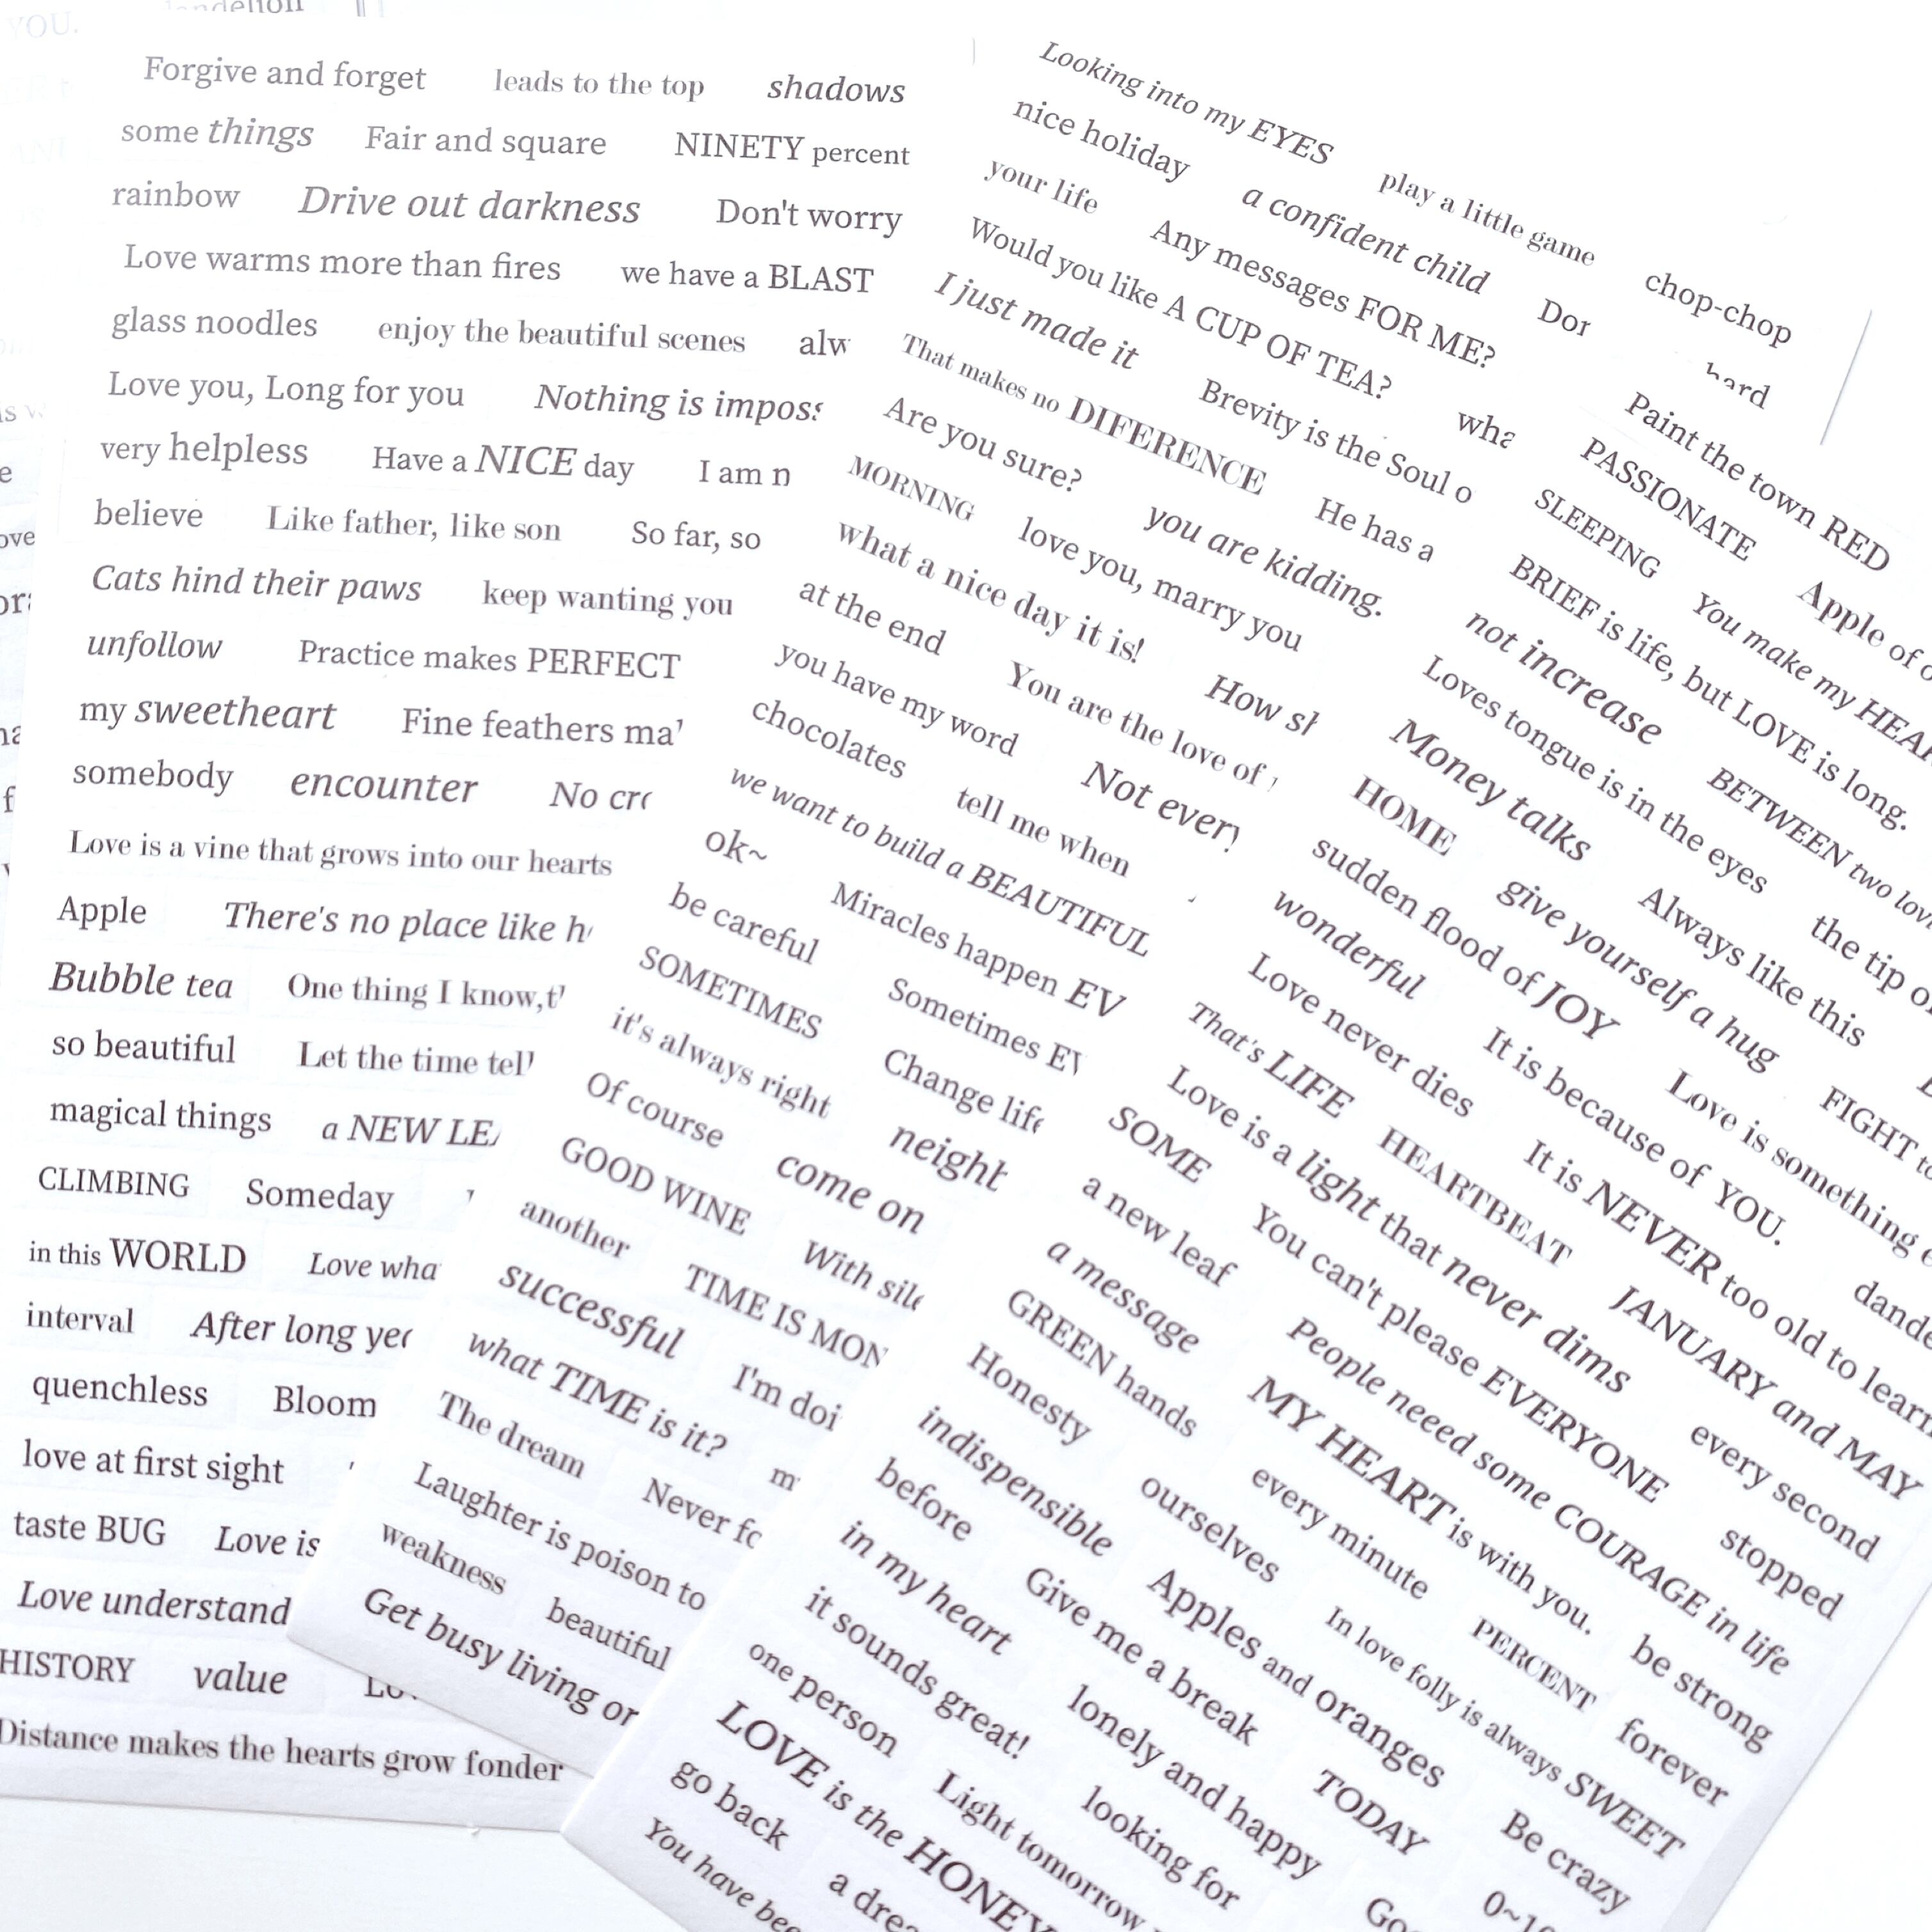 YOU.
Forgive and forget leads to the top shadows
some things Fair and square NINETY percent
rainbow Drive out darkness Don't worry
Love warms more than fires we have a BLAST
glass noodles enjoy the beautiful scenes alw
Love you, Long for you Nothing is imposs
very helpless Have a NICE day I am n
believe Like father, like son So far, so
Cats hind their paws keep wanting you
unfollow Practice makes PERFECT
my sweetheart Fine feathers ma
somebody encounter No cro
Love is a vine that grows into our hearts
Apple There's no place like h
Bubble tea One thing I know,t
so beautiful Let the time tell
magical things a NEW LEA
CLIMBING Someday
in this WORLD Love wha
interval After long yea
quenchless Bloom
love at first sight
taste BUG Love is
Love understand
HISTORY value Lo
Distance makes the hearts grow fonder
Looking into my EYES play a little game chop-chop
nice holiday a confident child Dor hard
your life Any messages FOR ME?
Would you like A CUP OF TEA? wha
I just made it Brevity is the Soul o
That makes no DIFERENCE He has a
Are you sure? you are kidding.
MORNING love you, marry you
what a nice day it is! How sh
at the end You are the love of
you have my word Not every
chocolates tell me when
we want to build a BEAUTIFUL
ok~ Miracles happen EV
be careful Sometimes EV
SOMETIMES Change life
it's always right neight
Of course come on
GOOD WINE With sile
another TIME IS MON
successful I'm doi
what TIME is it? m
The dream Never fo
Laughter is poison to
weakness beautiful
Get busy living or
Paint the town RED
PASSIONATE Apple of
SLEEPING You make my HEAR
BRIEF is life, but LOVE is long.
not increase BETWEEN two lov
Loves tongue is in the eyes the tip o
Money talks Always like this
HOME give yourself a hug FIGHT to
sudden flood of JOY Love is something
wonderful It is because of YOU. dande
Love never dies It is NEVER too old to learn
That's LIFE HEARTBEAT JANUARY and MAY
Love is a light that never dims every second
SOME You can't please EVERYONE stopped
a new leaf People neeed some COURAGE in life
a message MY HEART is with you. be strong
GREEN hands every minute PERCENT forever
Honesty ourselves In love folly is always SWEET
indispensible Apples and oranges Be crazy
before Give me a break TODAY 0~10
in my heart lonely and happy Go
it sounds great! looking for
one person Light tomorrow
LOVE is the HONEY
go back a drea
You have bee